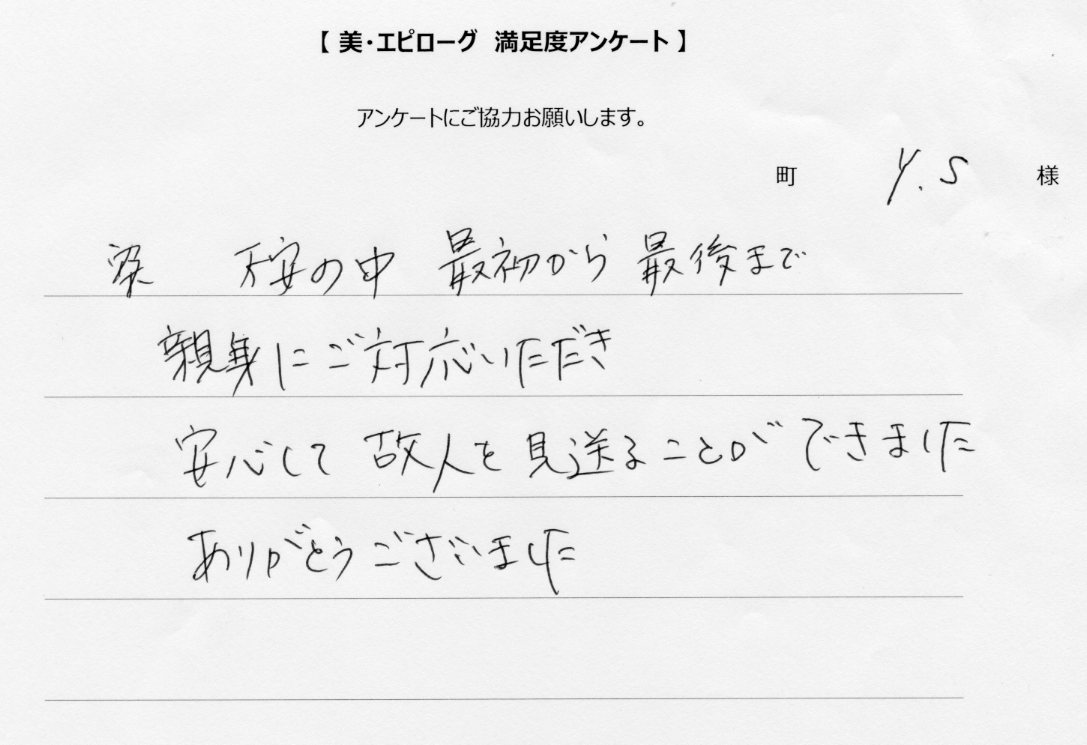 【 美・エピローグ 満足度アンケート 】
アンケートにご協力お願いします。
町 Y.S 様
不安の中 最初から 最後まで
親身にご対応いただき
安心して 故人を見送ることが できました
ありがとうございました